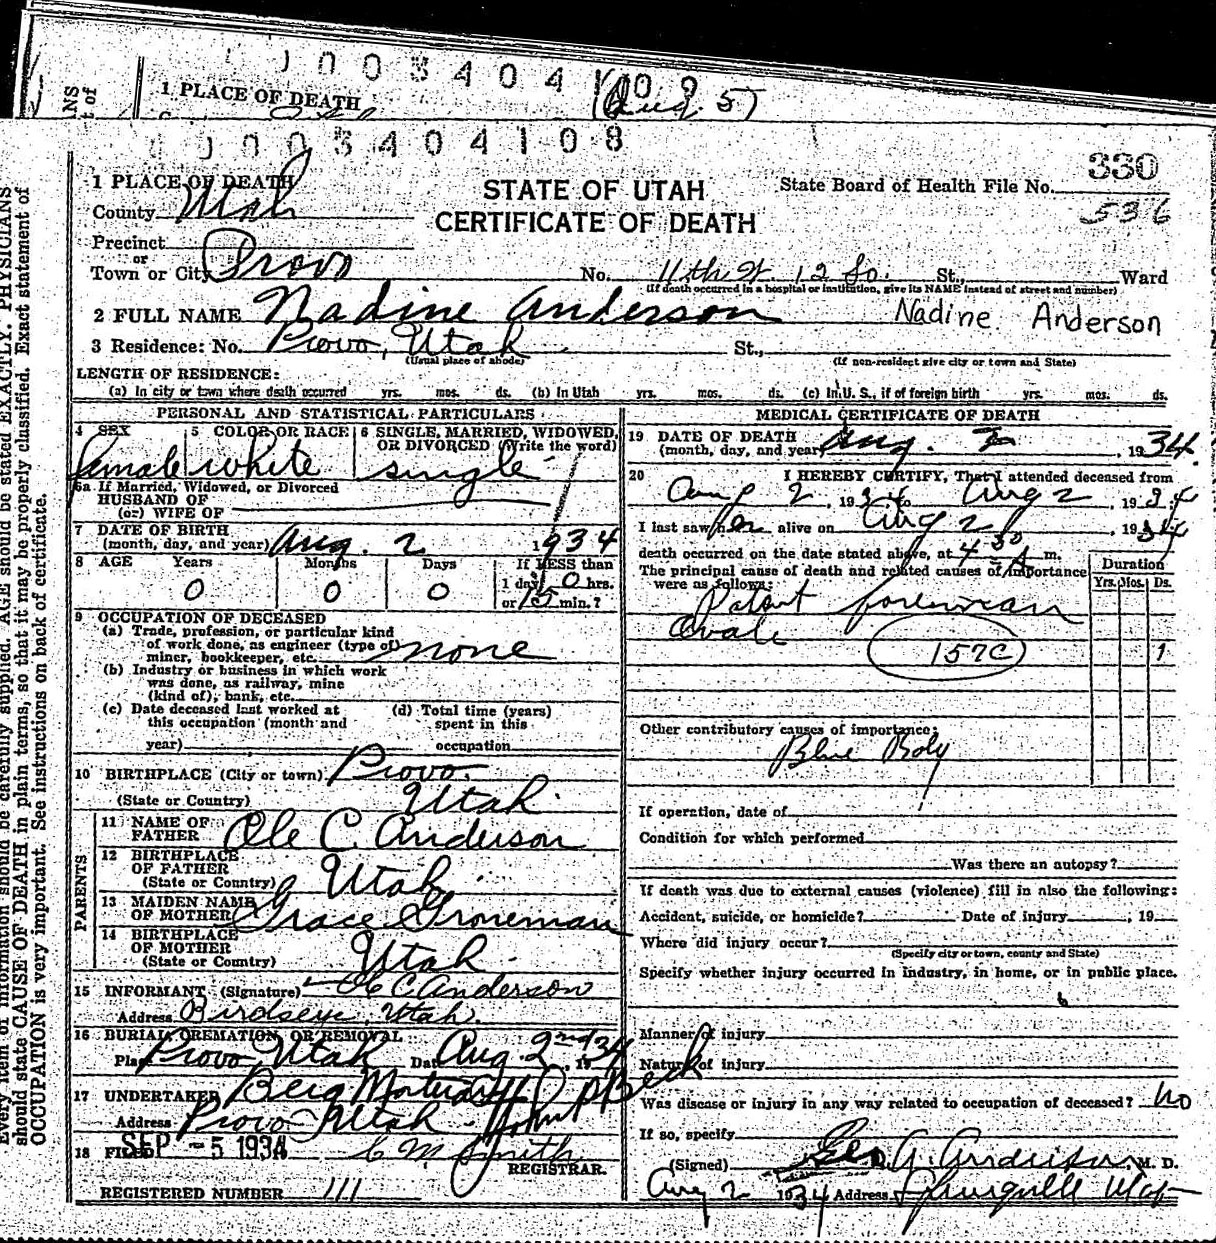 1 PLACE OF DEATH
(Aug. 5)
0 0 3 4 0 4 1 0 8
330
1 PLACE OF DEATH
STATE OF UTAH
State Board of Health File No.
536
County Utah
CERTIFICATE OF DEATH
Precinct
or
Town or City Provo No. 11th W. 12 So. St., Ward
(If death occurred in a hospital or institution, give its NAME instead of street and number)
2 FULL NAME Nadine Anderson Nadine Anderson
3 Residence: No. Provo, Utah St.,
(Usual place of abode) (If non-resident give city or town and State)
LENGTH OF RESIDENCE:
(a) In city or town where death occurred yrs. mos. ds. (b) In Utah yrs. mos. ds. (c) In U. S., if of foreign birth yrs. mos. ds.
PERSONAL AND STATISTICAL PARTICULARS
4 SEX 5 COLOR OR RACE 6 SINGLE, MARRIED, WIDOWED,
OR DIVORCED (Write the word)
female white single
6a If Married, Widowed, or Divorced
HUSBAND OF
(or) WIFE OF
7 DATE OF BIRTH
(month, day, and year) Aug. 2 1934
8 AGE Years Months Days If LESS than
0 0 0 1 day 0 hrs.
or 15 min.?
9 OCCUPATION OF DECEASED
(a) Trade, profession, or particular kind
of work done, as engineer (type of)
miner, bookkeeper, etc. none
(b) Industry or business in which work
was done, as railway, mine
(kind of), bank, etc.
(c) Date deceased last worked at (d) Total time (years)
this occupation (month and spent in this
year) occupation
10 BIRTHPLACE (City or town) Provo.
(State or Country) Utah.
PARENTS
11 NAME OF
FATHER Ole C. Anderson
12 BIRTHPLACE
OF FATHER
(State or Country) Utah.
13 MAIDEN NAME
OF MOTHER Grace Groneman
14 BIRTHPLACE
OF MOTHER
(State or Country) Utah.
15 INFORMANT (Signature) O C Anderson
Address Birdseye, Utah.
16 BURIAL, CREMATION, OR REMOVAL:
Place Provo Utah Date Aug 2nd, 1934
17 UNDERTAKER Berg Mortuary
Address Provo Utah.
18 FILED SEP -5 1934 C M Smith
REGISTRAR.
REGISTERED NUMBER 111
MEDICAL CERTIFICATE OF DEATH
19 DATE OF DEATH
(month, day, and year) Aug. 2, 1934.
20 I HEREBY CERTIFY, That I attended deceased from
Aug 2, 1934 to Aug 2, 1934
I last saw her alive on Aug 2, 1934
death occurred on the date stated above, at 4 50 A m.
The principal cause of death and related causes of importance
were as follows:
Duration
Yrs. Mos. Ds.
Patent foreman
Ovale
157C 1
Other contributory causes of importance:
Blue Boby
If operation, date of
Condition for which performed
Was there an autopsy?
If death was due to external causes (violence) fill in also the following:
Accident, suicide, or homicide? Date of injury , 19
Where did injury occur?
(Specify city or town, county and State)
Specify whether injury occurred in industry, in home, or in public place.
Manner of injury
Nature of injury
Was disease or injury in any way related to occupation of deceased? no
If so, specify
(Signed) Geo. A. Anderson, M. D.
Aug 2 1934 Address Springville Utah
Every item of information should be carefully supplied. AGE should be stated EXACTLY. PHYSICIANS
should state CAUSE OF DEATH in plain terms, so that it may be properly classified. Exact statement of
OCCUPATION is very important. See instructions on back of certificate.